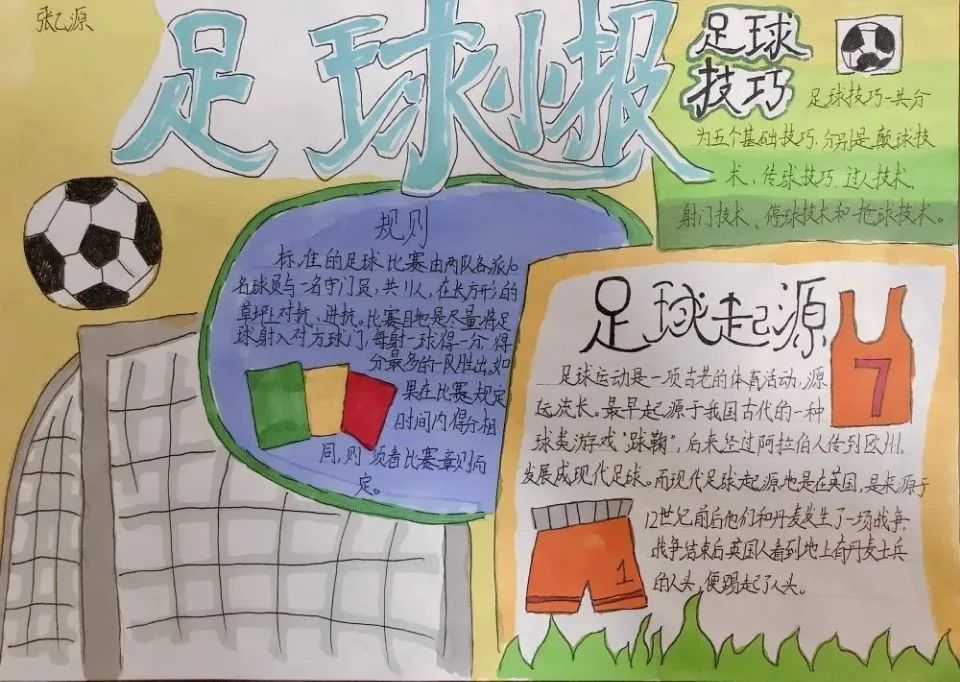 张乙源
足球小报
足球
技巧
足球技巧一共分
为五个基础技巧,分别是颠球技
术、传球技巧,过人技术,
射门技术、停球技术和抢球技术。
规则
标准的足球比赛由两队各派10
名球员与一名守门员,共11人,在长方形的
草坪上对抗、进抗。比赛目地是尽量将足
球射入对方球门,每射一球得一分,得
分最多的一队胜出,如
果在比赛规定
时间内得分相
同,则须看比赛章则而
定。
足球起源
足球运动是一项古老的体育活动,源
远流长。最早起源于我国古代的一种
球类游戏“蹴鞠”,后来经过阿拉伯人传到欧州,
发展成现代足球。而现代足球起源地是在英国,是来源于
12世纪前后他们和丹麦发生了一场战争,
战争结束后英国人看到地上有丹麦士兵
的人头,便踢起了人头。
7
1